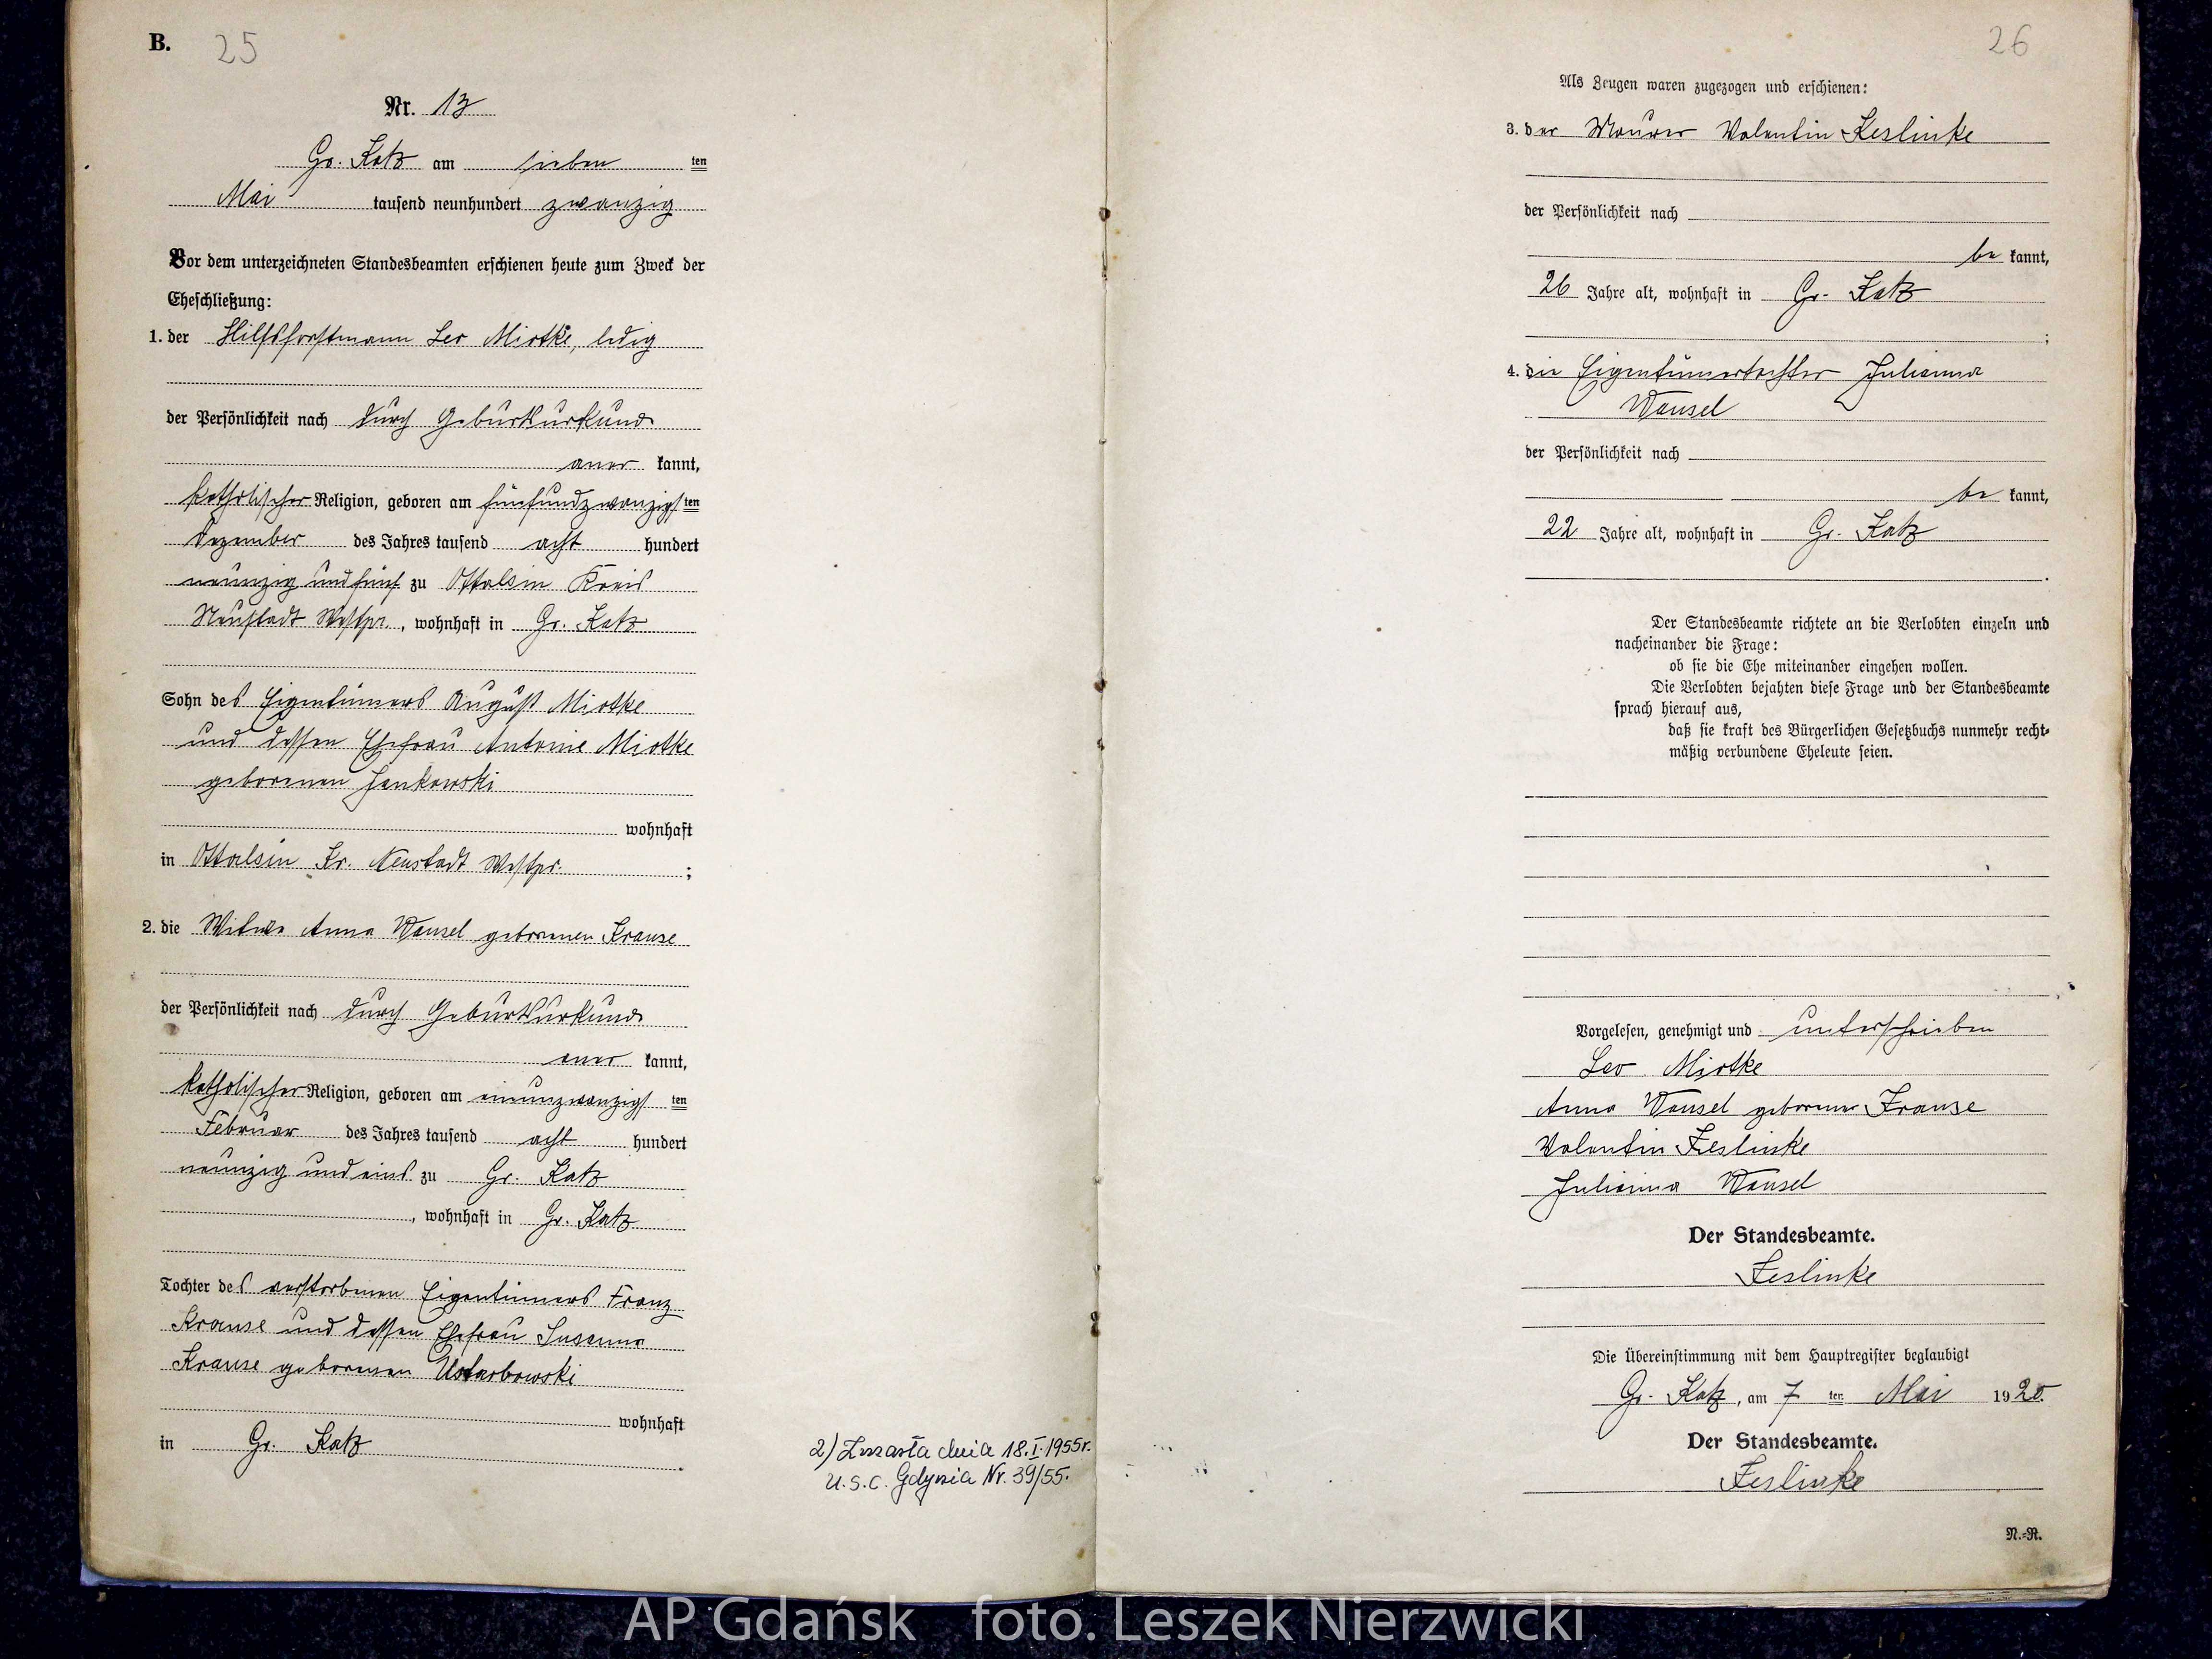 B. 25
Nr. 13
Gr. Katz am sieben ten
Mai tausend neunhundert zwanzig
Vor dem unterzeichneten Standesbeamten erschienen heute zum Zweck der
Eheschließung:
1. der Hilfsforstmann Leo Miotke, ledig
der Persönlichkeit nach durch Geburtsurkunde
aner kannt,
katholischer Religion, geboren am fünfundzwanzigsten
Dezember des Jahres tausend acht hundert
neunzig und fünf zu Ottalsin Kreis
Neustadt Westpr., wohnhaft in Gr. Katz
Sohn des Eigentümers August Miotke
und dessen Ehefrau Antonie Miotke
geborenen Jankowski
wohnhaft
in Ottalsin Kr. Neustadt Westpr. ;
2. die Witwe Anna Wansel geborenen Krause
der Persönlichkeit nach durch Geburtsurkunde
aner kannt,
katholischer Religion, geboren am einunzwanzigsten
Februar des Jahres tausend acht hundert
neunzig und eins zu Gr. Katz
, wohnhaft in Gr. Katz
Tochter des verstorbenen Eigentümers Franz
Krause und dessen Ehefrau Susanna
Krause geborenen Ustarbowski
wohnhaft
in Gr. Katz .
2) Zmarła dnia 18.I.1955r.
U.S.C. Gdynia Nr. 39/55.
26
Als Zeugen waren zugezogen und erschienen:
3. der Maurer Valentin Keslinke
der Persönlichkeit nach
be kannt,
26 Jahre alt, wohnhaft in Gr. Katz
;
4. die Eigentümertochter Julianna
Wansel
der Persönlichkeit nach
be kannt,
22 Jahre alt, wohnhaft in Gr. Katz
.
Der Standesbeamte richtete an die Verlobten einzeln und
nacheinander die Frage:
ob sie die Ehe miteinander eingehen wollen.
Die Verlobten bejahten diese Frage und der Standesbeamte
sprach hierauf aus,
daß sie kraft des Bürgerlichen Gesetzbuchs nunmehr recht-
mäßig verbundene Eheleute seien.
Vorgelesen, genehmigt und unterschrieben
Leo Miotke
Anna Wansel geborene Krause
Valentin Keslinke
Julianna Wansel
Der Standesbeamte.
Keslinke
Die Übereinstimmung mit dem Hauptregister beglaubigt
Gr. Katz, am 7 ten Mai 1920.
Der Standesbeamte.
Keslinke
N.-R.
AP Gdańsk foto. Leszek Nierzwicki